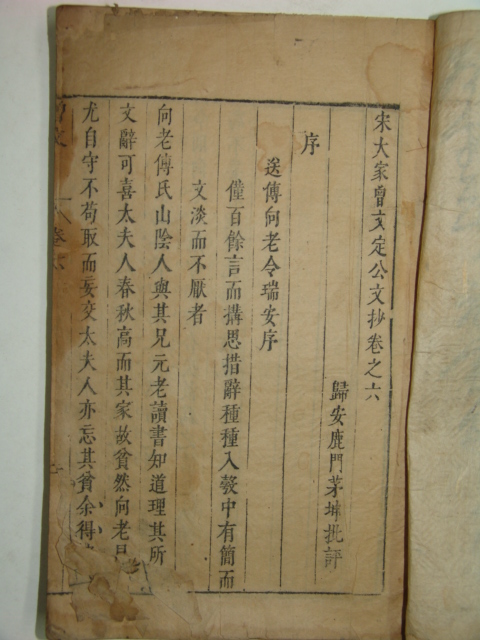 宋大家曾文定公文抄卷之六
歸安鹿門茅坤批評
序
送傅向老令瑞安序
僅百餘言而搆思措辭種種入彀中有簡而
文淡而不厭者
向老傅氏山陰人與其兄元老讀書知道理其所
文辭可喜太夫人春秋高而其家故貧然向老昆
尤自守不苟取而妄交太夫人亦忘其貧余得
曾文
卷六